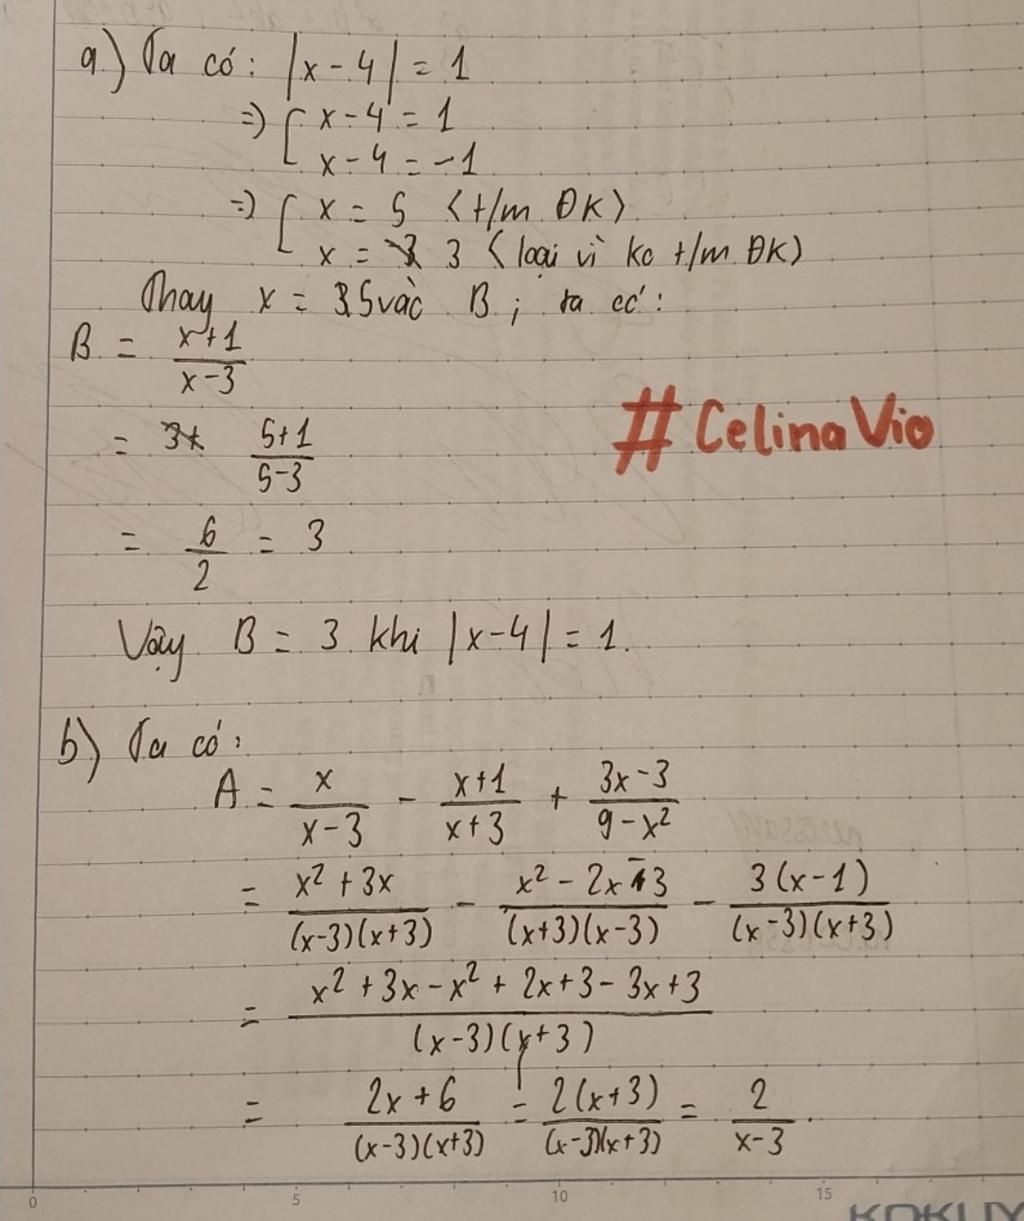 a) Ta có: |x - 4| = 1
=) [ x - 4 = 1
x - 4 = -1
=) [ x = 5 <t/m ĐK>
x = 3 <loại vì ko t/m ĐK)
Thay x = 5 vào B; ta có:
B = \frac{x+1}{x-3}
= \frac{5+1}{5-3}
= \frac{6}{2} = 3
Vậy B = 3 khi |x-4| = 1.
#CelinaVio
b) Ta có:
A = \frac{x}{x-3} - \frac{x+1}{x+3} + \frac{3x-3}{9-x^2}
= \frac{x^2+3x}{(x-3)(x+3)} - \frac{x^2-2x-3}{(x+3)(x-3)} - \frac{3(x-1)}{(x-3)(x+3)}
= \frac{x^2+3x-x^2+2x+3-3x+3}{(x-3)(x+3)}
= \frac{2x+6}{(x-3)(x+3)} = \frac{2(x+3)}{(x-3)(x+3)} = \frac{2}{x-3}.
0 5 10 15